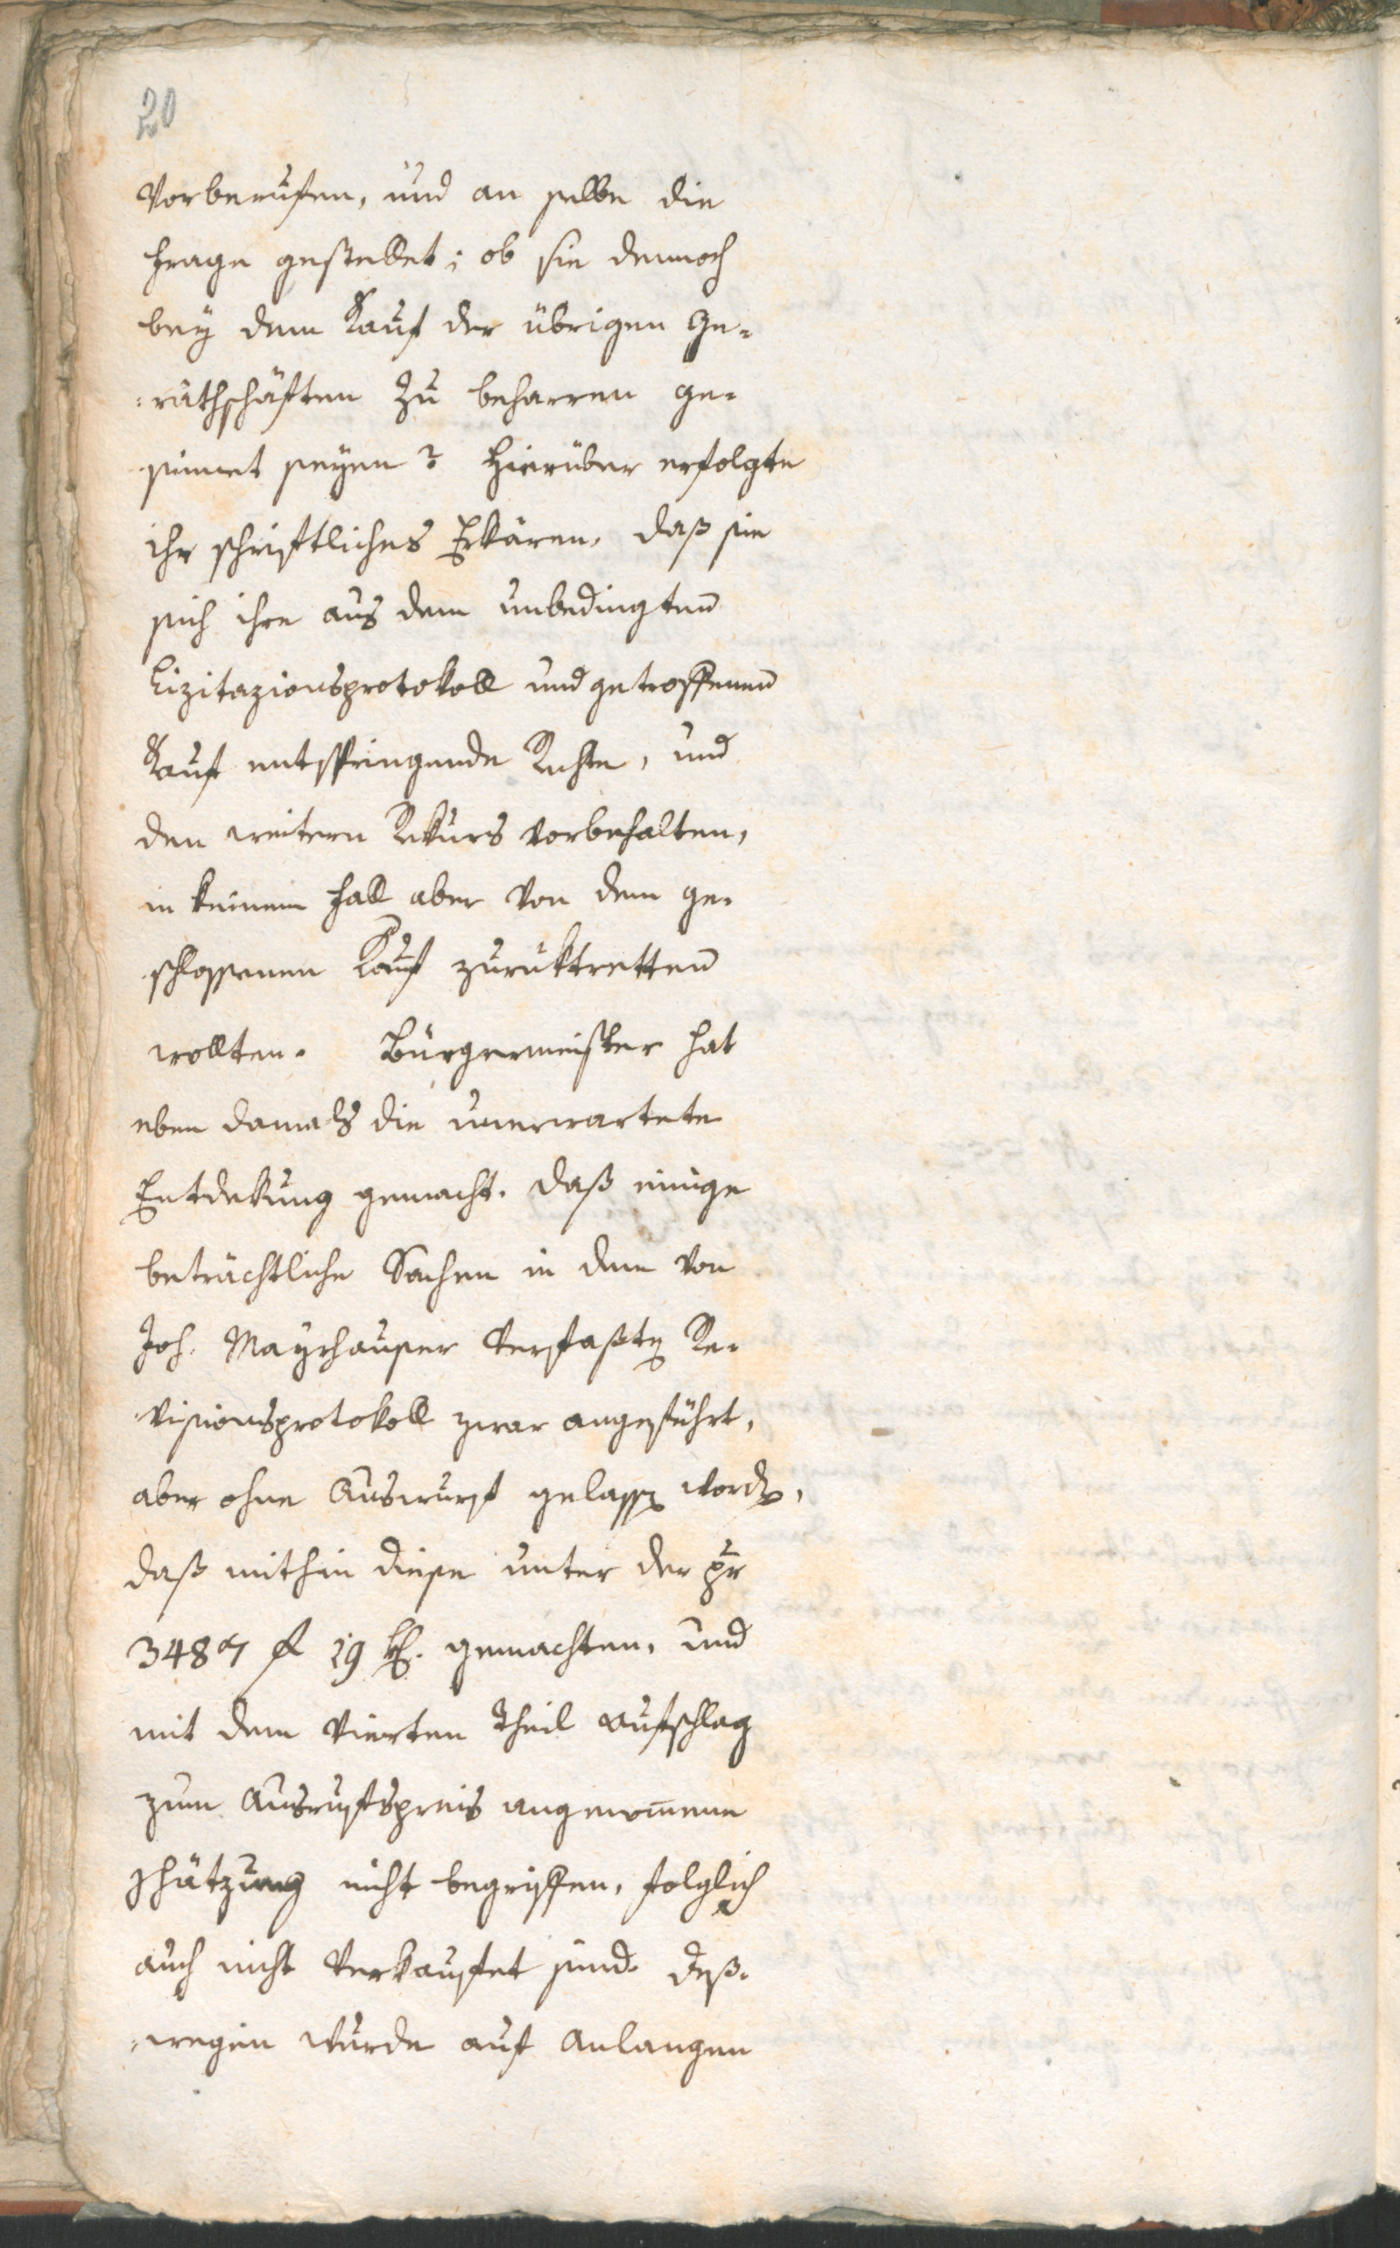 20
vorberufen, und an selbe die
Frage gestellet; ob sie dennoch
bey dem Kauf der übrigen Ge-
räthschäften zu beharren ge-
sinnet seyen? Hierüber erfolgte
ihr schriftliches Erkären, daß sie
sich ihre aus dem unbedingten
Lizitazionsprotokoll und getroffenen
Kauf entspringende Rechte, und
den weitern Rekurs vorbehalten,
in keinem Fall aber von dem ge-
schlossenen Kauf zurüktretten
wollten. Bürgermeister hat
eben damals die unerwartete
Entdekung gemacht. daß einige
beträchtliche Sachen in dem von
Joh. Mayrhauser verfaßten Re-
visionsprotokoll zwar angeführt,
aber ohne Auswurf gelassen worden,
daß mithin diese unter der pr
3487 f 19 k. gemachten, und
mit dem vierten Theil Aufschlag
zum Ausrufspreis angenomene
Schätzung nicht begriffen, folglich
auch nicht verkaufet sind. Deß-
wegen wurde auf Anlangen